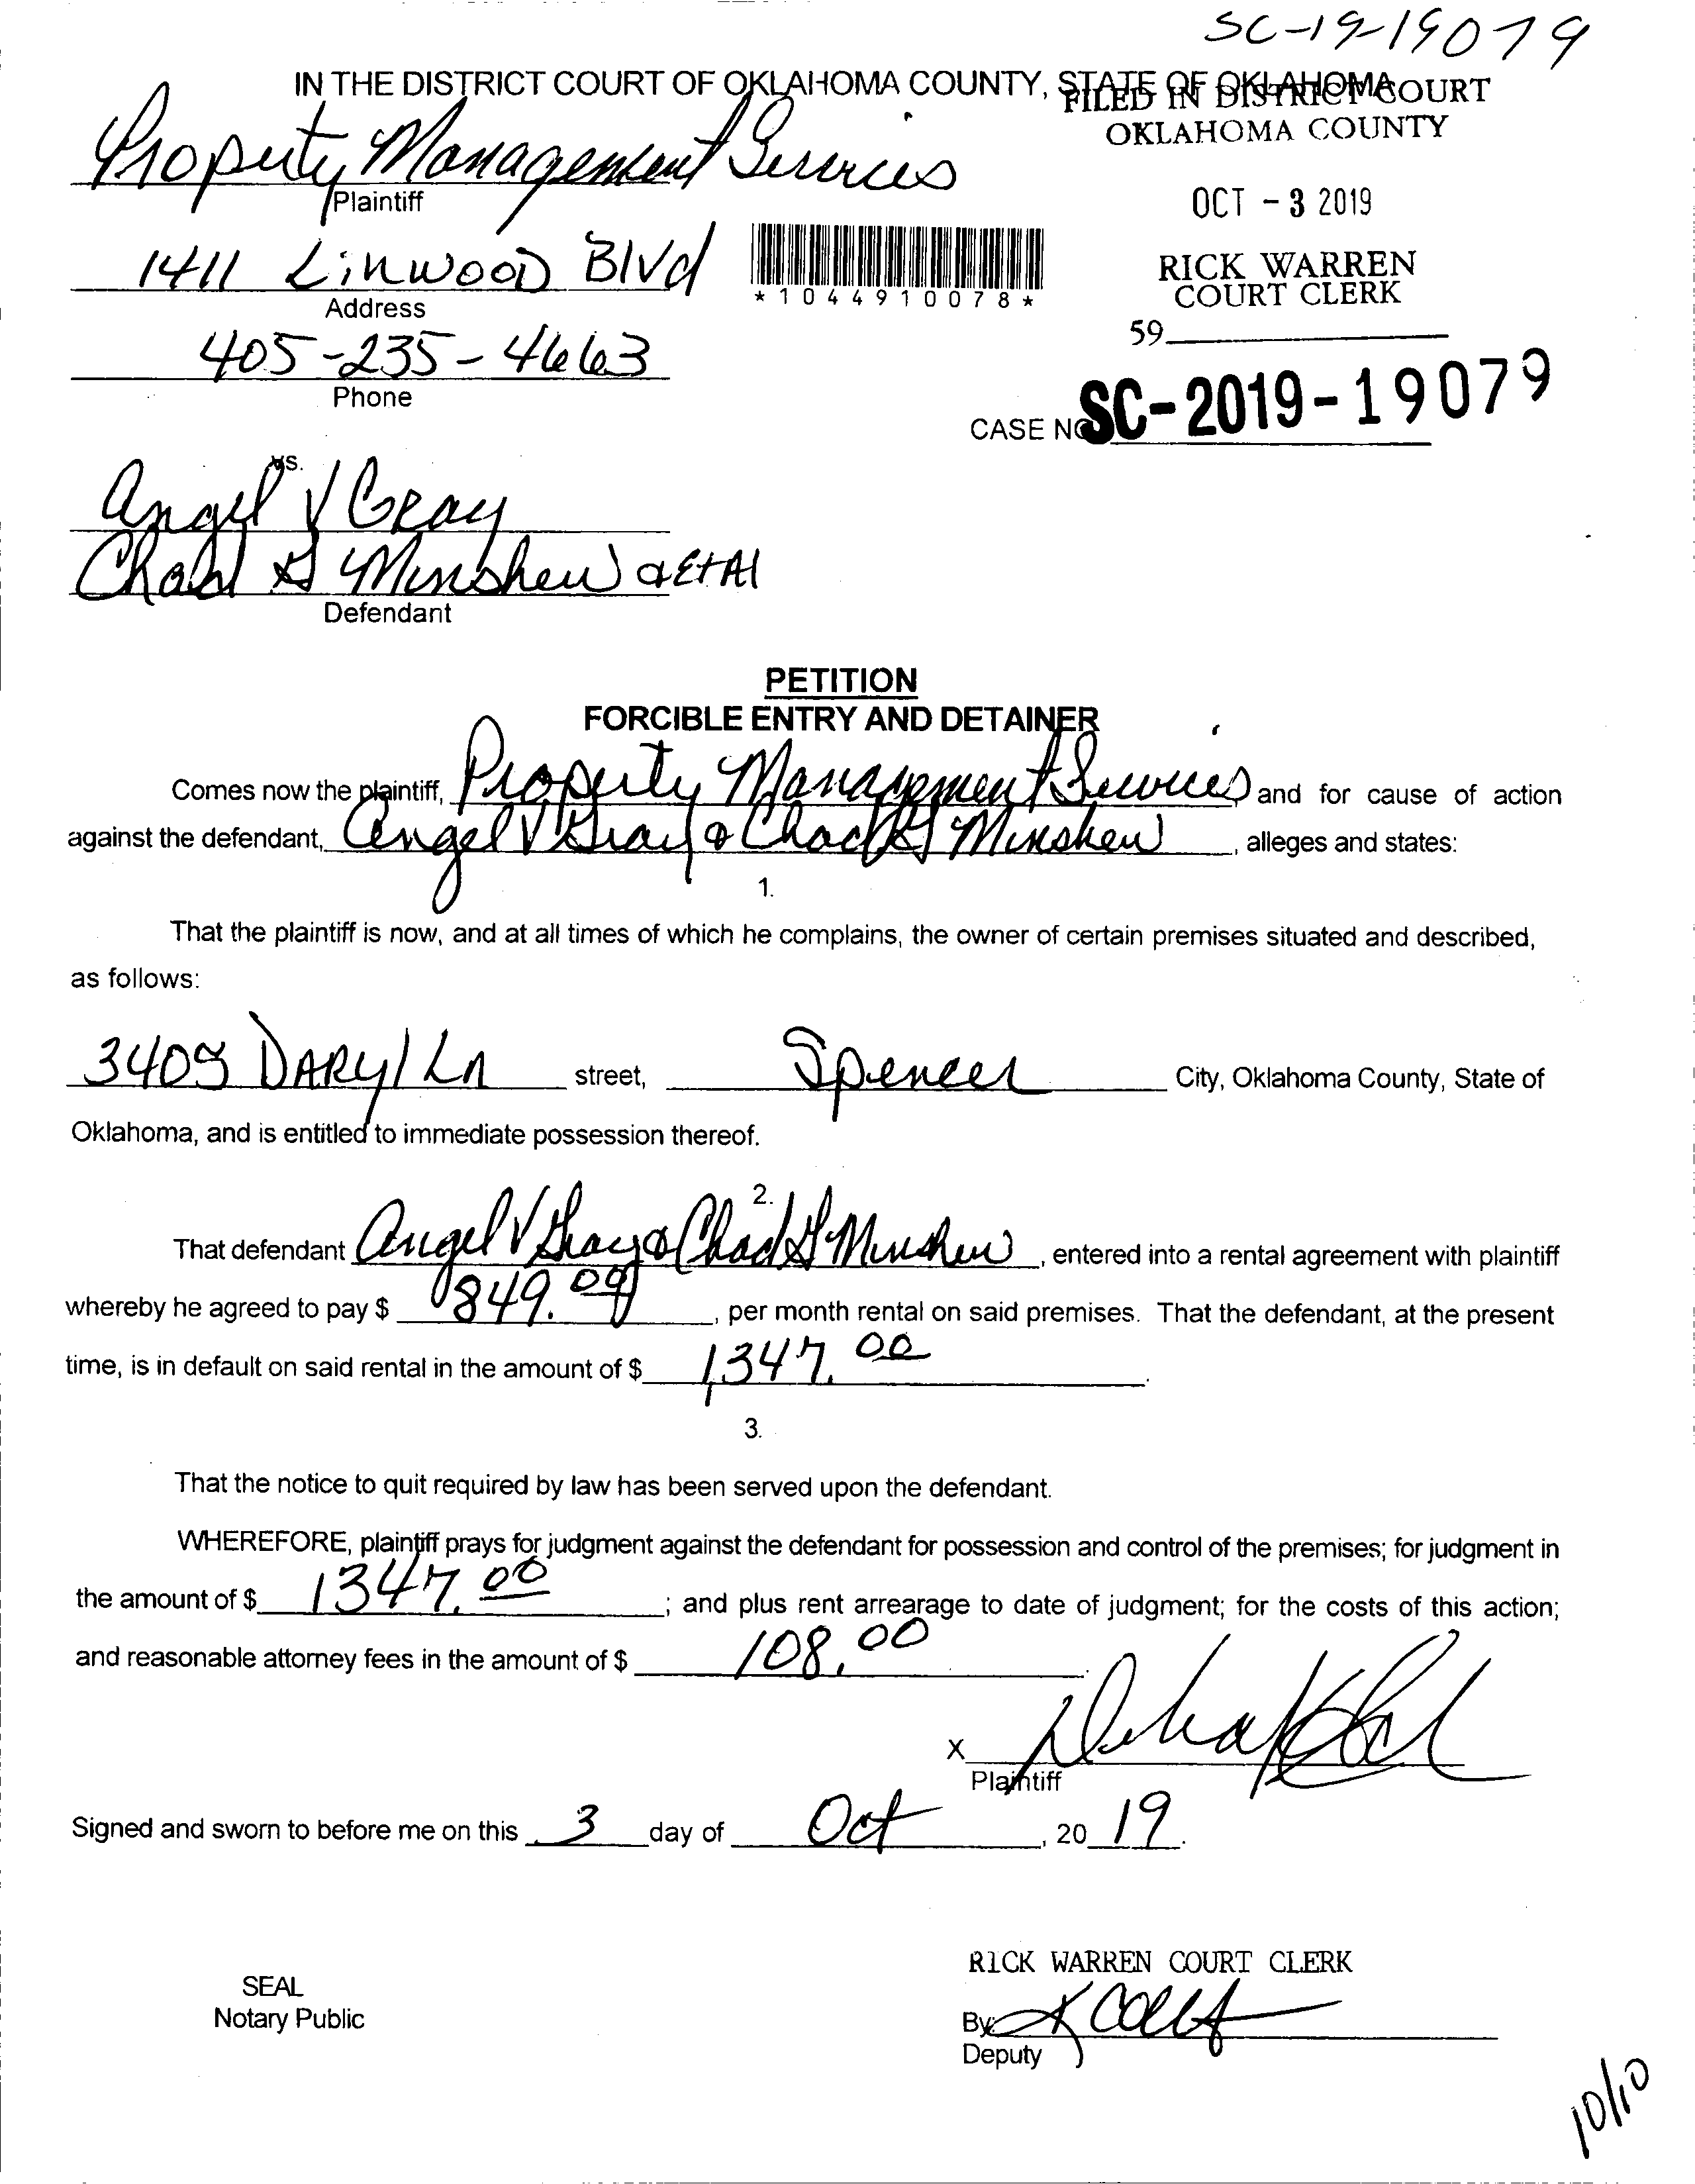 SC-19-19079
IN THE DISTRICT COURT OF OKLAHOMA COUNTY, STATE OF OKLAHOMA
FILED IN DISTRICT COURT
OKLAHOMA COUNTY
Property Management Services
Plaintiff
OCT - 3 2019
1411 Linwood Blvd
Address
*1044910078*
RICK WARREN
COURT CLERK
59
405-235-4663
Phone
CASE NO SC-2019-19079
vs.
Angel V Gray
Chad G Minshew & EtAl
Defendant
PETITION
FORCIBLE ENTRY AND DETAINER
Comes now the plaintiff, Property Management Services and for cause of action
against the defendant, Angel V Gray & Chad G Minshew, alleges and states:
1.
That the plaintiff is now, and at all times of which he complains, the owner of certain premises situated and described,
as follows:
3409 DARyl Ln street, Spencer City, Oklahoma County, State of
Oklahoma, and is entitled to immediate possession thereof.
2.
That defendant Angel V Gray & Chad G Minshew, entered into a rental agreement with plaintiff
whereby he agreed to pay $ 849.00, per month rental on said premises. That the defendant, at the present
time, is in default on said rental in the amount of $ 1,347.00.
3.
That the notice to quit required by law has been served upon the defendant.
WHEREFORE, plaintiff prays for judgment against the defendant for possession and control of the premises; for judgment in
the amount of $ 1347.00; and plus rent arrearage to date of judgment; for the costs of this action;
and reasonable attorney fees in the amount of $ 108.00.
X
Plaintiff
Signed and sworn to before me on this 3 day of Oct, 20 19.
RICK WARREN COURT CLERK
SEAL
Notary Public
By:
Deputy
10/10